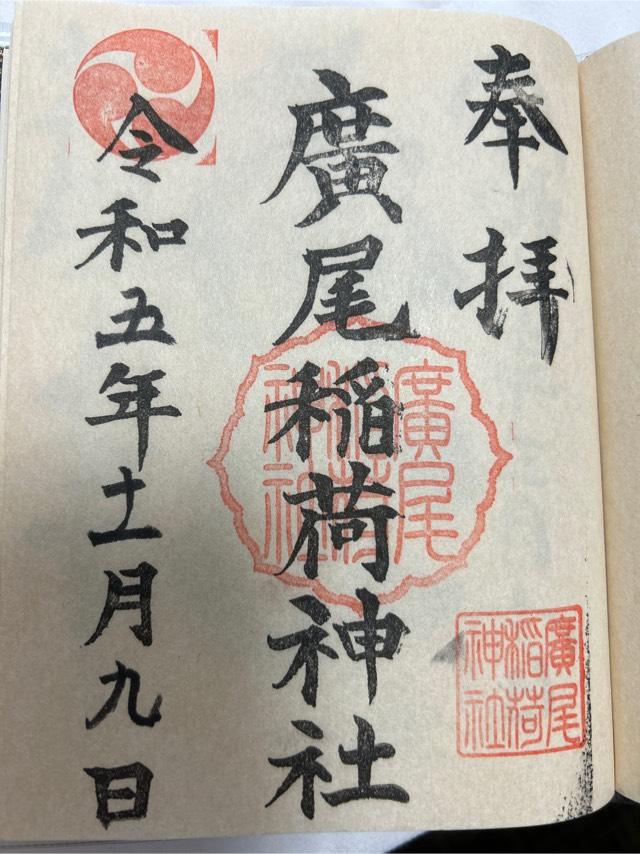 奉拝
廣尾稲荷神社
令和五年十一月九日
廣尾
稲荷
神社
廣尾
稲荷
神社